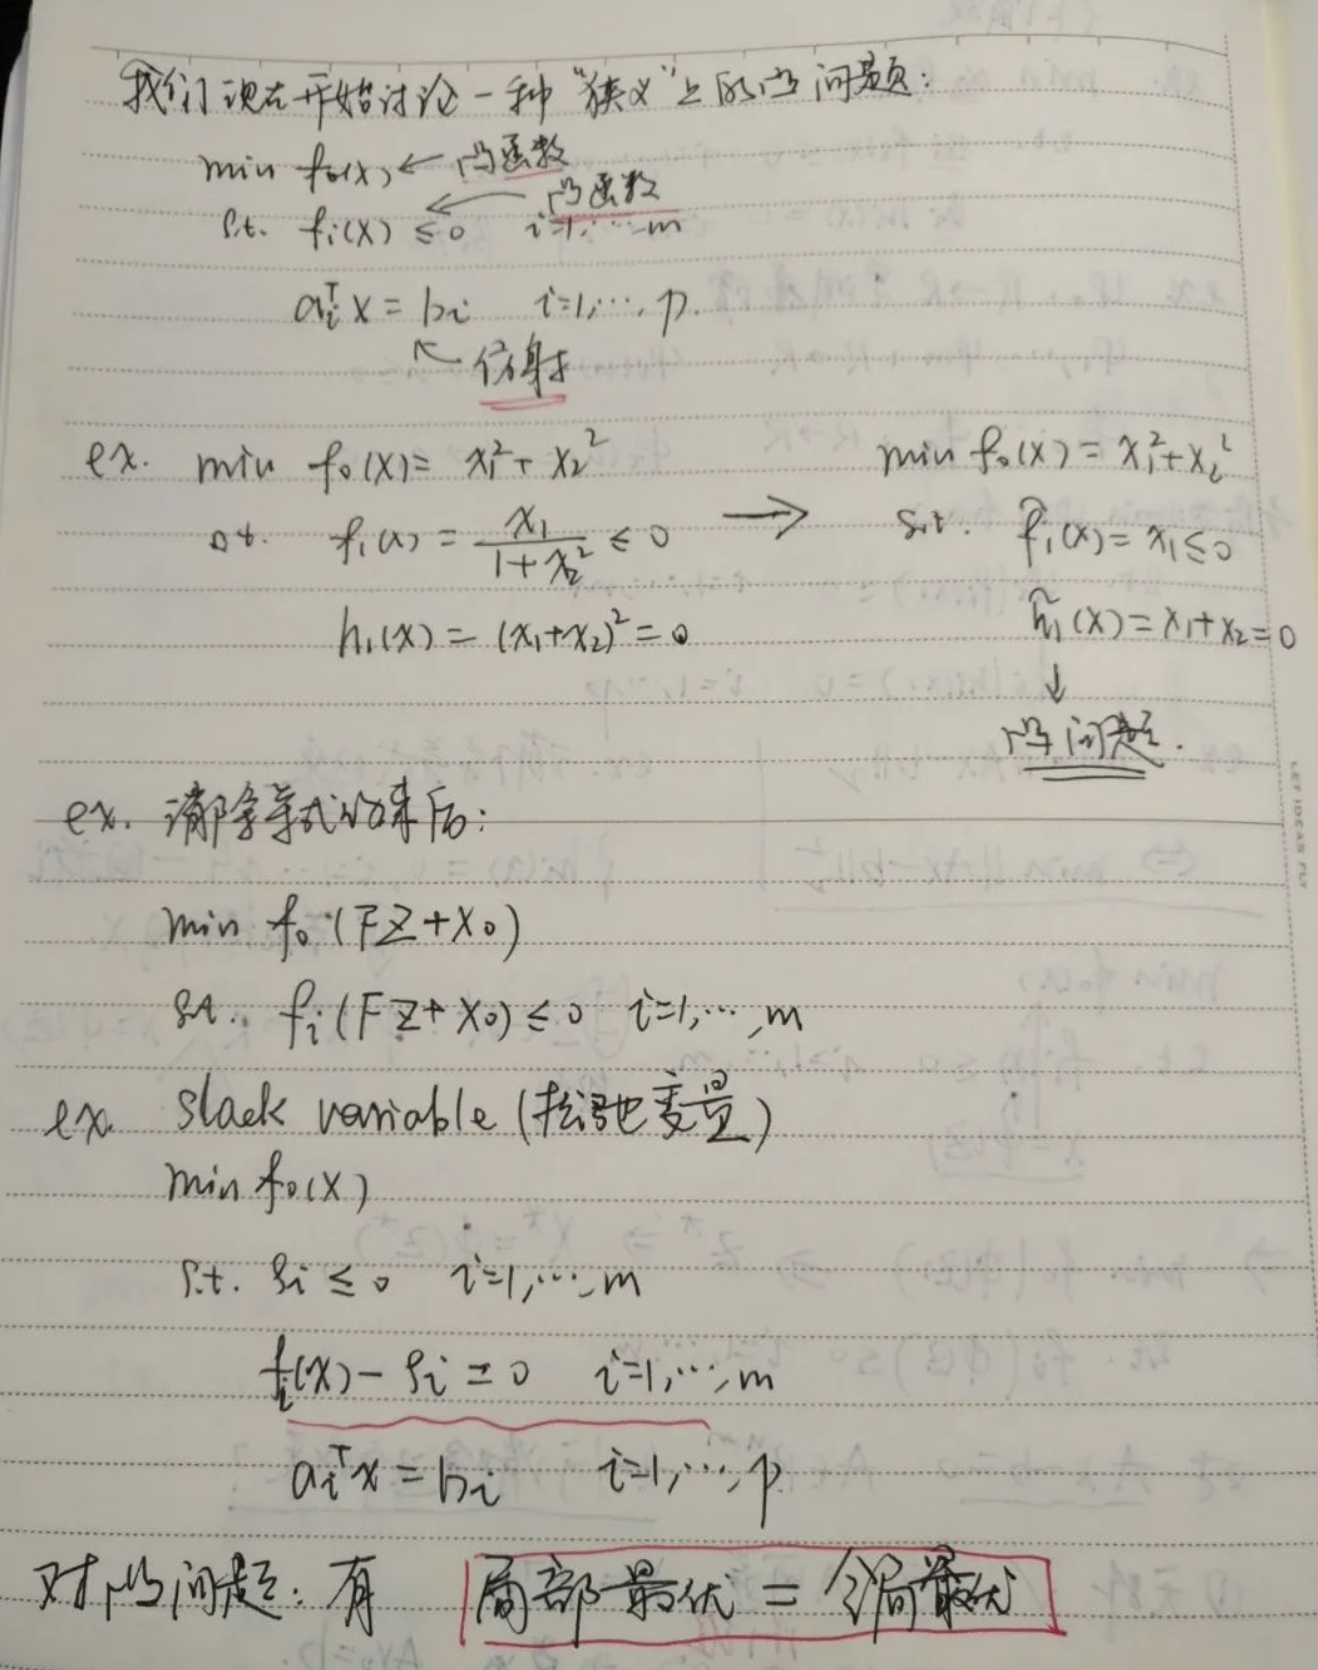 我们现在开始讨论一种“狭义”上的凸问题:
min f₀(x) ← 凸函数
s.t. fᵢ(x) ≤ 0 i=1,…,m ← 凸函数
aᵢᵀx = bᵢ i=1,…,p.
↖ 仿射
ex. min f₀(x) = x₁² + x₂²
s.t. f₁(x) = x₁/(1+x₂²) ≤ 0
h₁(x) = (x₁+x₂)² = 0
→
min f₀(x) = x₁²+x₂²
s.t. f̃₁(x) = x₁ ≤ 0
h̃₁(x) = x₁+x₂ = 0
↓
凸问题.
ex. 消除等式约束后:
min f₀(Fz+x₀)
s.t. fᵢ(Fz+x₀) ≤ 0 i=1,…,m
ex. slack variable (松弛变量)
min f₀(x)
s.t. sᵢ ≤ 0 i=1,…,m
fᵢ(x) - sᵢ = 0 i=1,…,m
aᵢᵀx = bᵢ i=1,…,p.
对凸问题: 有 局部最优 = 全局最优
LET IDEAS FLY